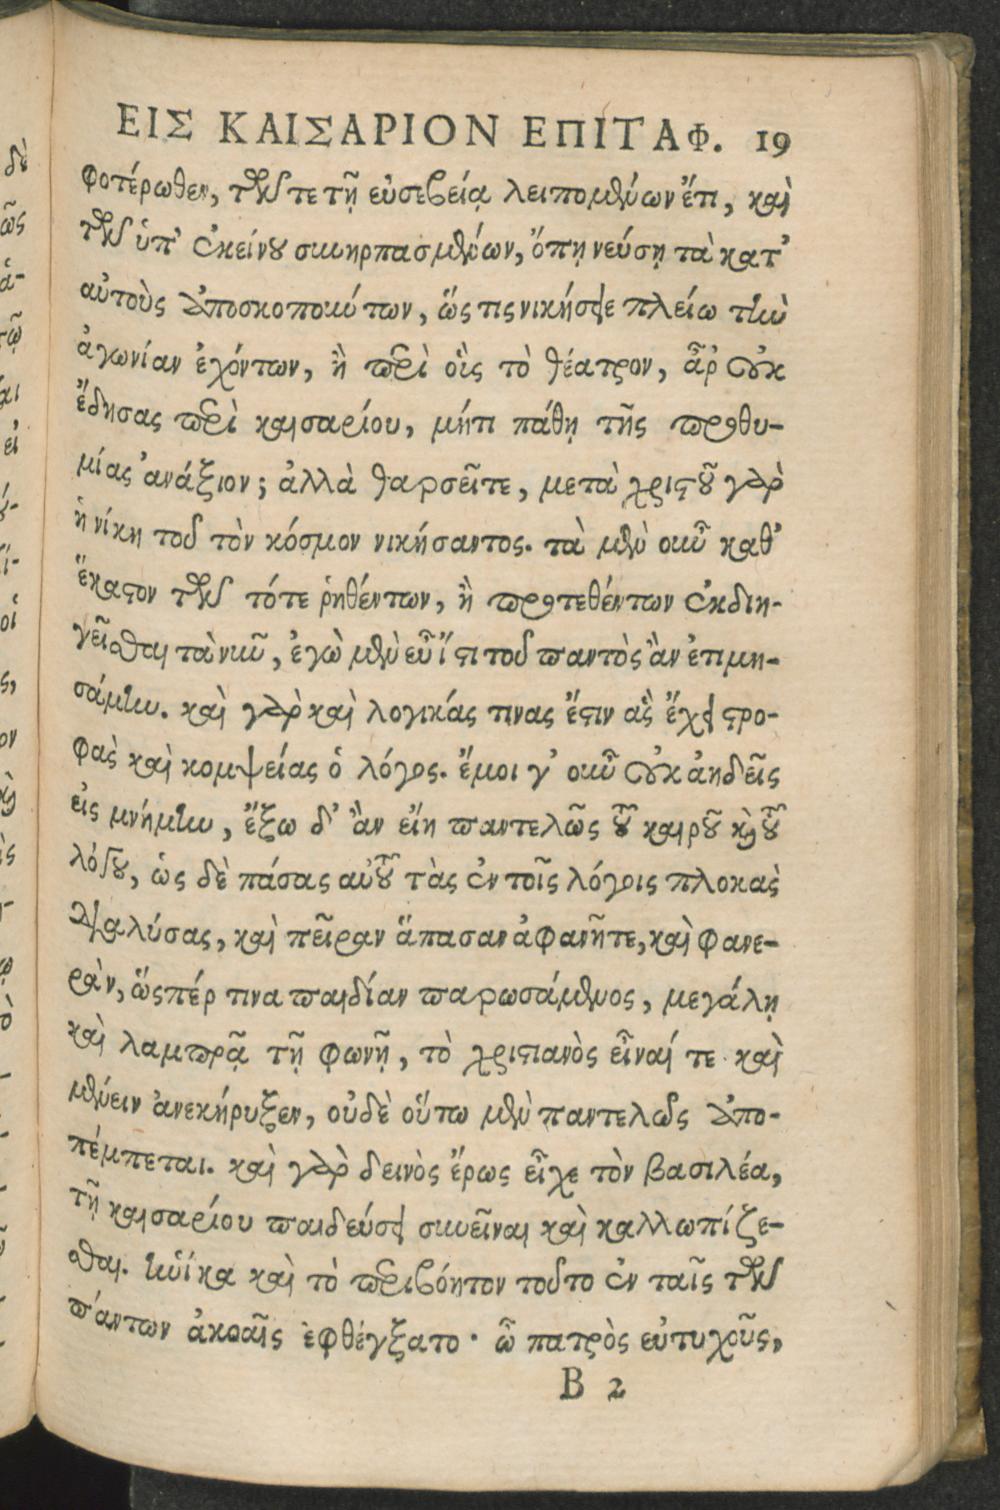 ΕΙΣ ΚΑΙΣΑΡΙΟΝ ΕΠΙΤΑΦ. 19
φοτέρωθεν, τῶν τε τῇ εὐσεβείᾳ λειπομένων ἔτι, καὶ
τῶν ὑπ' ἐκείνου συνηρπασμένων, ὅπῃ νεύσῃ τὰ κατ'
αὐτοὺς ἀποσκοπούντων, ὥς τις νικήσειε πλείω τὴν
ἀγωνίαν ἐχόντων, ἢ περὶ οἷς τὸ θέατρον, ἆρ οὐκ
ἔδησας περὶ καισαρίου, μήτι πάθῃ τῆς προθυ-
μίας ἀνάξιον; ἀλλὰ θαρσεῖτε, μετὰ χριστοῦ γὰρ
ἡ νίκη τοῦ τὸν κόσμον νικήσαντος. τὰ μὲν οὖν καθ'
ἕκαστον τῶν τότε ῥηθέντων, ἢ προτεθέντων ἐκδιη-
γεῖσθαι τὰ νῦν, ἐγὼ μὲν εὖ ἴστι τοῦ παντὸς ἂν ἐτιμη-
σάμην. καὶ γὰρ καὶ λογικάς τινας ἔστιν ἃς ἔχει στρο-
φὰς καὶ κομψείας ὁ λόγος. ἔμοι γ' οὖν οὐκ ἀηδεῖς
εἰς μνήμην, ἔξω δ' ἂν εἴη παντελῶς τοῦ καιροῦ κὶ τοῦ
λόγου, ὡς δὲ πάσας αὐτοῦ τὰς ἐν τοῖς λόγοις πλοκὰς
διαλύσας, καὶ πεῖραν ἅπασαν ἀφανῆ τε, καὶ φανε-
ρὰν, ὥσπέρ τινα παιδίαν παρωσάμενος, μεγάλῃ
καὶ λαμπρᾷ τῇ φωνῇ, τὸ χριστιανὸς εἶναί τε καὶ
μένειν ἀνεκήρυξεν, οὐδὲ οὕπω μὲν παντελῶς ἀπο-
πέμπεται. καὶ γὰρ δεινὸς ἔρως εἶχε τὸν βασιλέα,
τῇ καισαρίου παιδεύσει συνεῖναι καὶ καλλωπίζε-
σθαι. ἡνίκα καὶ τὸ περιβόητον τοῦτο ἐν ταῖς τῶν
πάντων ἀκοαῖς ἐφθέγξατο· ὦ πατρὸς εὐτυχοῦς,
B 2